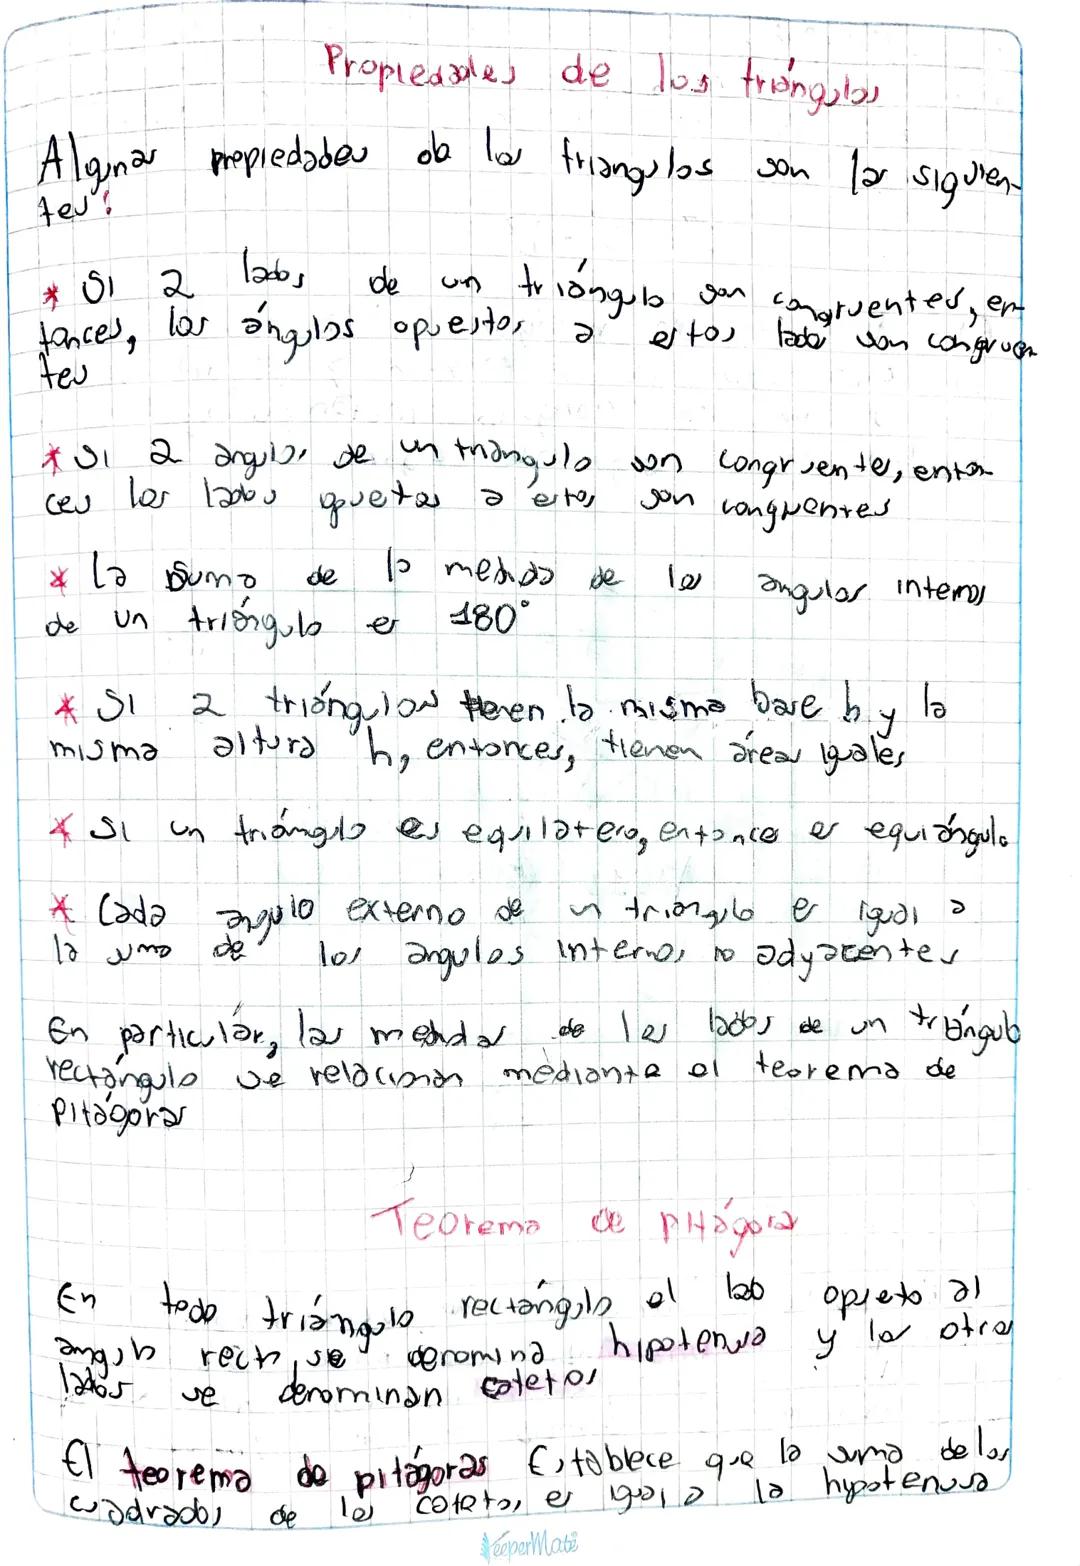 Propiedades de los triángulos
Algunas propiedades de los triangulos son las siguien-
tes:
* Si 2 lados de un triángulo son congruentes, en-
tonces, los ángulos opuestos a estos lados son congruen
tes
* Si 2 angulos de un triángulo son congruentes, enton-
ces los lados opuetos a estos son congruentes
* La suma de la medida de los angulos internos
de un triángulo es 180°
* Si 2 triángulos tienen la misma base b y la
misma altura h, entonces, tienen áreas iguales
* Si un triángulo es equilatero, entonces es equiángulo
* Cada angulo externo de un triángulo es igual a
la suma de los angulos internos no adyacentes
En particular, las medidas de los lados de un triángulo
rectángulo se relacionan mediante el teorema de
Pitágoras
Teorema de pitágoras
En todo triángulo rectángulo el lado opueto al
angulo recto, se denomina hipotenusa y los otros
lados se denominan catetos
El teorema de pitágoras Establece que la suma de los
cuadrados de los catetos, es igual a la hypotenusa
KeeperMate